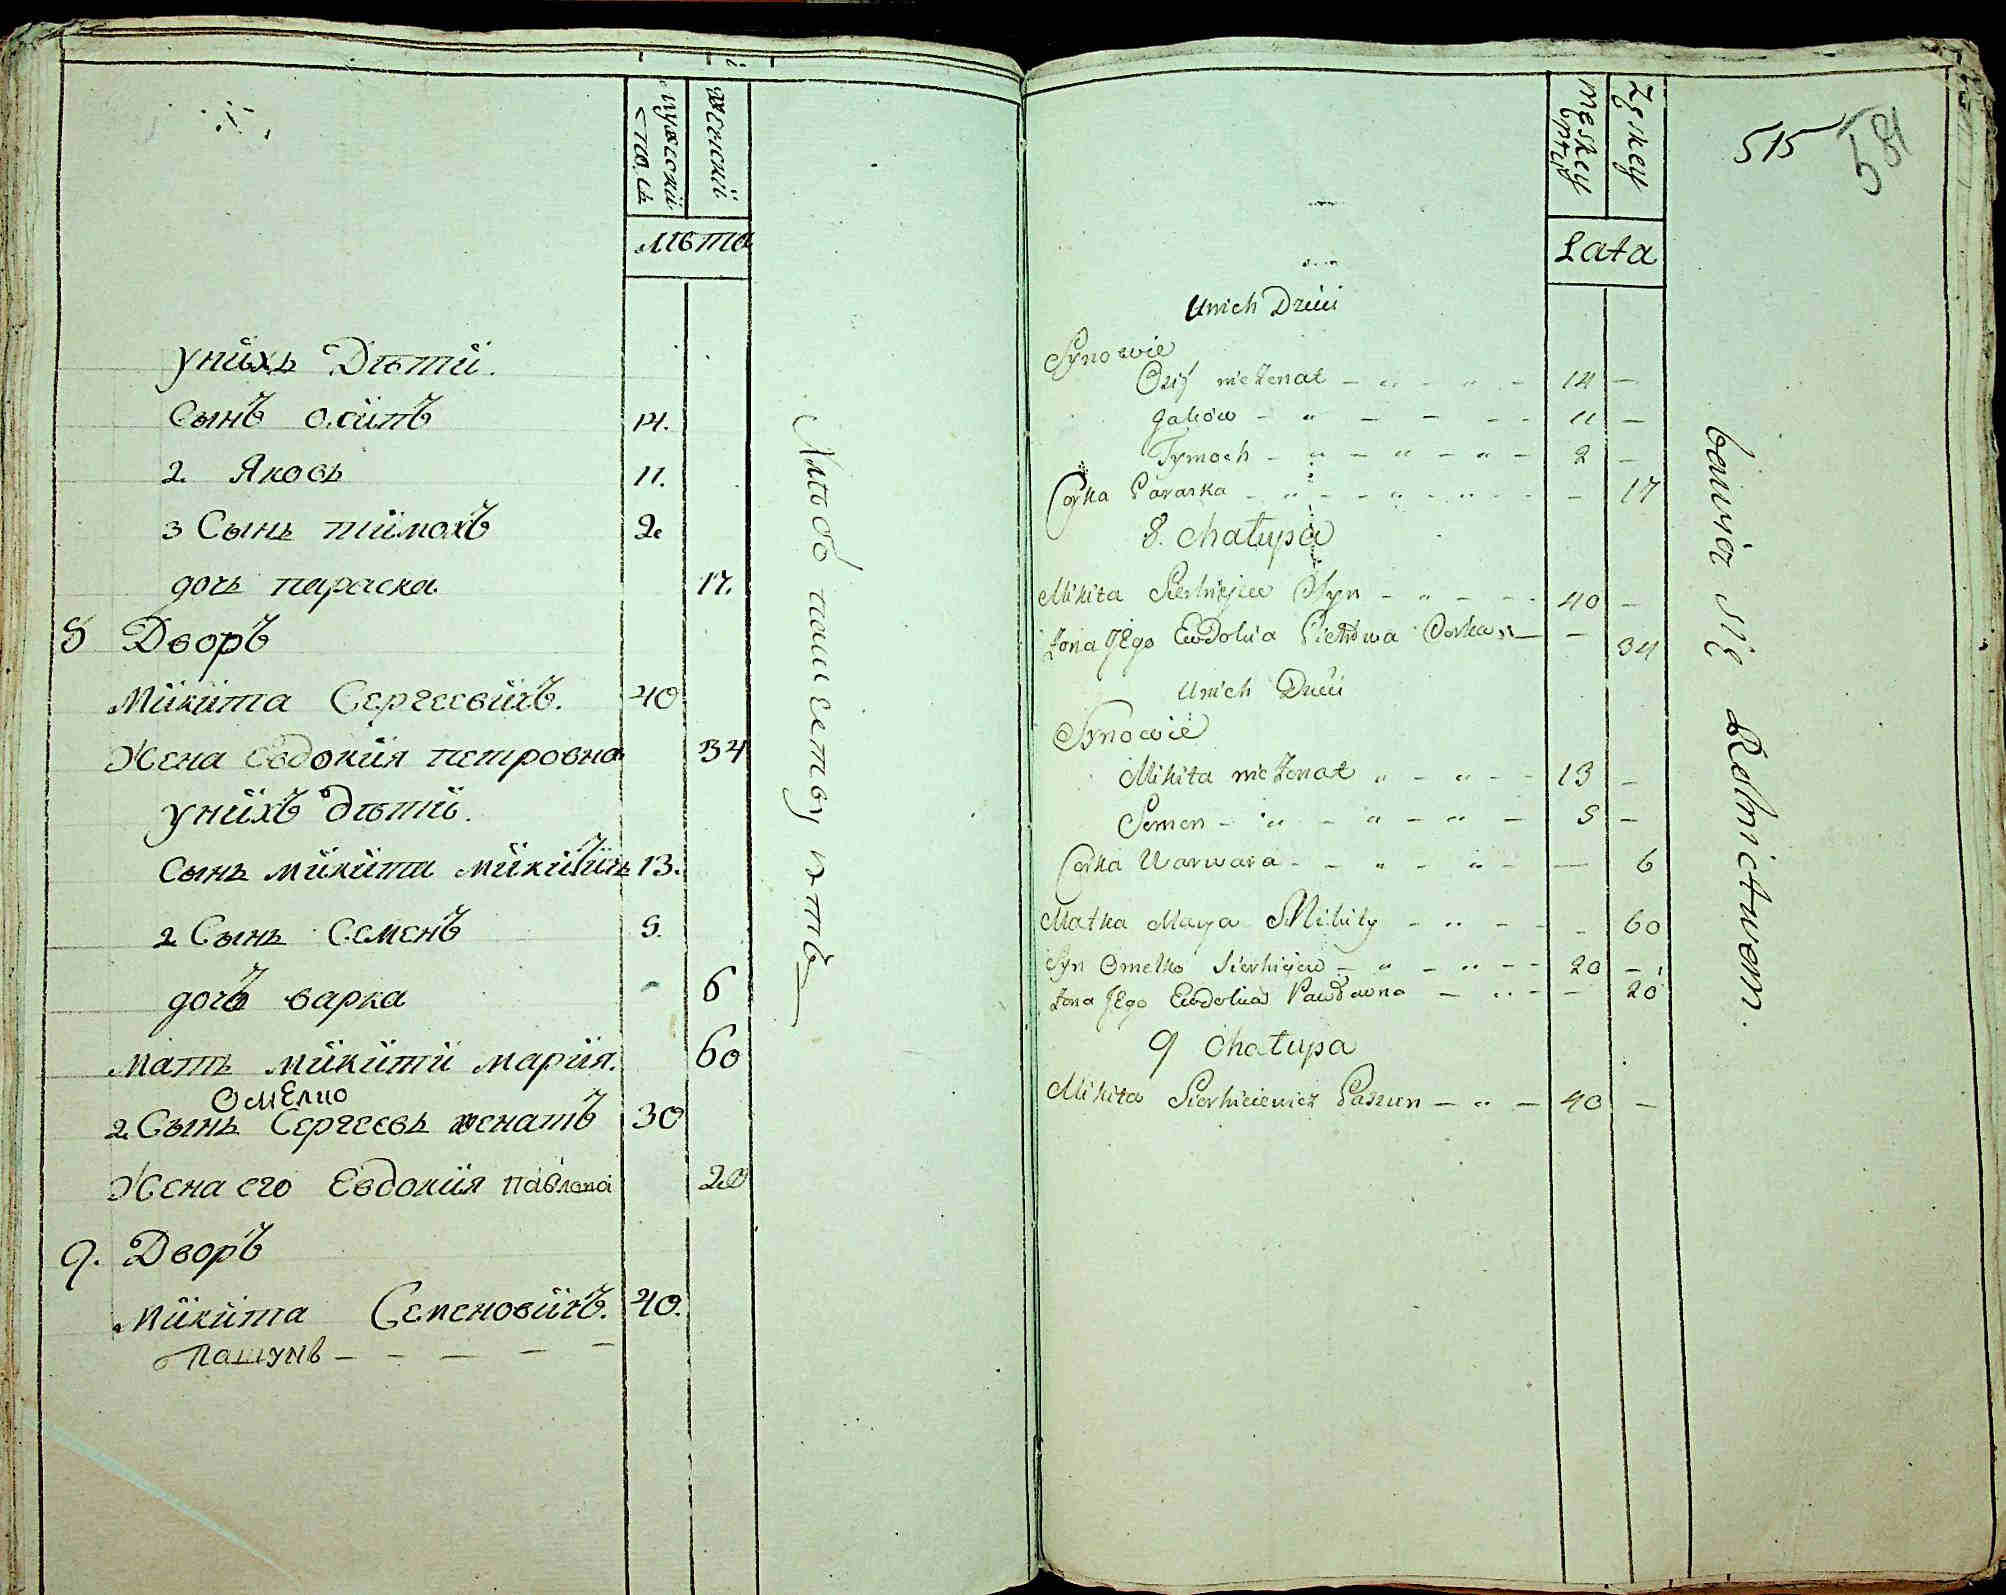 мужской
женский
лѣта
унихъ Дѣти.
Сынъ осипъ 14.
2. Яковъ 11.
3 Сынъ тимохъ 2.
дочь параска. 17.
8 Дворъ
Микита Сергеевичъ. 40
Жена Евдокия петровна 34
унихъ дѣти.
Сынъ микита микитичъ 13.
2 Сынъ Семенъ 5.
дочь варка - 6
мать микити мария. 60
Омелко
2. Сынъ Сергеевъ женатъ 30
Жена его Евдокия павловна 20
9. Дворъ
Микита Семеновичъ. 40.
Пашунъ - - - - -
męskey
płci
Zęskey
515
581
Lata
Unich Dzieci
Synowie
Osif nie żenat - " - " - 14 -
Jakow - " - - - - 11 -
Tymoch - " - " - " - 2 -
Corka Paraska - " - - " - " - - - 17
8. Chałupa
Mikita Sierhiejew Syn - " - - - 40 -
Żona Jego Ewdokia Pietrowa Corka " - - 34
Unich Dzieci
Synowie
Mikita nie żenat " - " - - 13 -
Semen - " - " - " - 5 -
Corka Warwara - - " - " - - 6
Matka Marya Mikity - " - - - 60
Syn Omelko Sierhiejew - " - " - - 20 -
Żona Jego Ewdokia Pawłowna - " - - 20
9 Chałupa
Mikita Sierhieiewicz Paszun - " - 40 -
bawią się Rolnictwem.